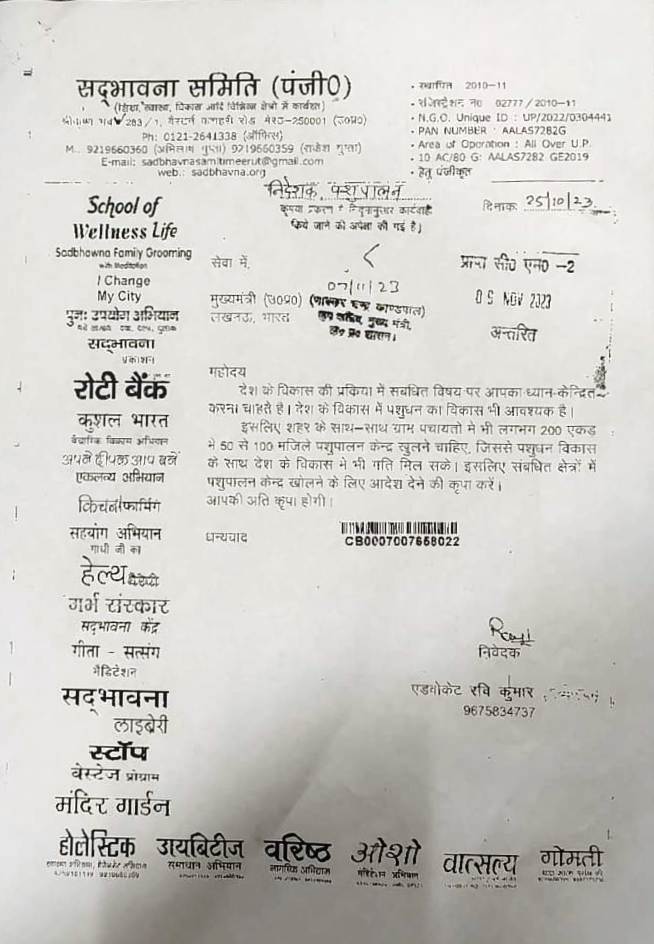 सद्भावना समिति (पंजी0)
(शिक्षा, स्वास्थ्य, विकास आदि विभिन्न क्षेत्रों में कार्यरत)
283 / 1, वैस्टर्न कचहरी रोड मेरठ-250001 (उ0प्र0)
Ph: 0121-2641338 (ऑफिस)
M.. 9219660360 (अभिलाष गुप्ता) 9219660359 (राजेश गुप्ता)
E-mail: sadbhavnasamitimeerut@gmail.com
web.: sadbhavna.org
• स्थापित 2010-11
• रजिस्ट्रेशन न0 02777 / 2010-11
• N.G.O. Unique ID : UP/2022/0304441
• PAN NUMBER : AALAS7282G
• Area of Operation : All Over U.P.
• 10 AC/80 G: AALAS7282 GE2019
• हेतु पंजीकृत
निदेशक, पशुपालन
कृपया प्रकरण में नियमानुसार कार्यवाही
किये जाने की अपेक्षा की गई है)
दिनांक 25/10/23
सेवा में,
07/11/23
मुख्यमंत्री (उ0प्र0)
लखनऊ, भारत
(भास्कर चन्द्र काण्डपाल)
उप सचिव, मुख्य मंत्री,
उ0 प्र0 शासन।
प्राप्त सी0 एम0 -2
05 NOV 2023
अन्तरित
महोदय
देश के विकास की प्रकिया में सबंधित विषय पर आपका ध्यान-केन्द्रित
करना चाहते है। देश के विकास में पशुधन का विकास भी आवश्यक है।
इसलिए शहर के साथ-साथ ग्राम पचायतो मे भी लगभग 200 एकड
मे 50 से 100 मजिले पशुपालन केन्द्र खुलने चाहिए, जिससे पशुधन विकास
के साथ देश के विकास मे भी गति मिल सके। इसलिए संबधित क्षेत्रों में
पशुपालन केन्द्र खोलने के लिए आदेश देने की कृपा करें।
आपकी अति कृपा होगी।
धन्यवाद
CB0007007658022
Ravi
निवेदक
एडवोकेट रवि कुमार
9675834737
School of
Wellness Life
Sadbhawna Family Grooming
with Meditation
I Change
My City
पुनः उपयोग अभियान
सद्भावना
प्रकाशन
रोटी बैंक
कुशल भारत
वैचारिक विकास अभियान
अपने दीपक आप बनें
एकलव्य अभियान
किचन फार्मिंग
सहयोग अभियान
गांधी जी का
हेल्थ थैरेपी
गर्भ संस्कार
सद्भावना केंद्र
गीता - सत्संग
मैडिटेशन
सद्भावना
लाइब्रेरी
स्टॉप
वेस्टेज प्रोग्राम
मंदिर गार्डन
होलेस्टिक
डायबिटीज
समाधान अभियान
वरिष्ठ
नागरिक अभियान
ओशो
मेडिटेशन अभियान
वात्सल्य
गोमती